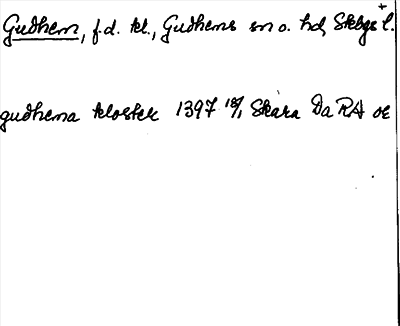 Gudhem, f.d. kl., Gudhems sn o. hd, Skbgs l.
gudhema kloster 1397 18/1 Skara Da RA oe